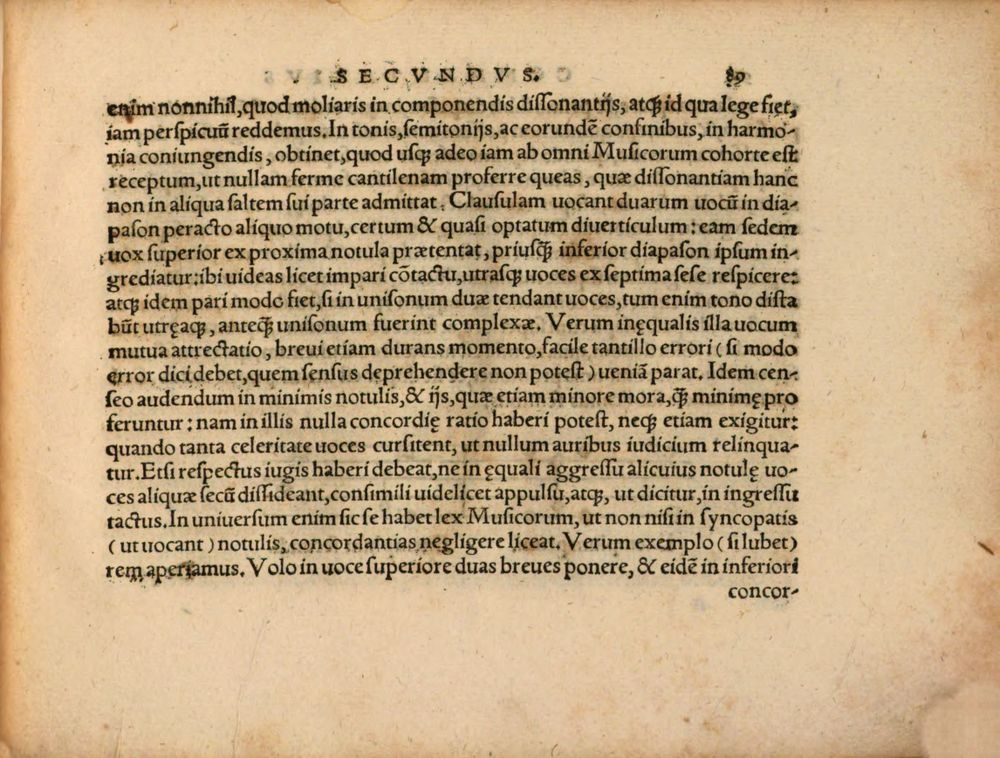 SECVNDVS. 89
enim nonnihil, quod moliaris in componendis dissonantijs, atq̃ id qua lege fiet,
iam perspicuũ reddemus. In tonis, semitonijs, ac eorundẽ confinibus, in harmo-
nia coniungendis, obtinet, quod usq̃ adeo iam ab omni Musicorum cohorte est
receptum, ut nullam ferme cantilenam proferre queas, quæ dissonantiam hanc
non in aliqua saltem sui parte admittat. Clausulam uocant duarum uocũ in dia-
pason peracto aliquo motu, certum & quasi optatum diuerticulum: eam sedem
uox superior ex proxima notula prætentat, priusq̃ inferior diapason ipsum in-
grediatur: ibi uideas licet impari cõtactu, utrasq̃ uoces ex septima sese respicere:
atq̃ idem pari modo fiet, si in unisonum duæ tendant uoces, tum enim tono dista
bũt utręq̃, anteq̃ unisonum fuerint complexæ. Verum inęqualis illa uocum
mutua attrectatio, breui etiam durans momento, facile tantillo errori (si modo
error dici debet, quem sensus dęprehendere non potest) ueniã parat. Idem cen-
seo audendum in minimis notulis, & ijs, quæ etiam minore mora, q̃ minimę pro
feruntur: nam in illis nulla concordię ratio haberi potest, neq̃ etiam exigitur:
quando tanta celeritate uoces cursitent, ut nullum auribus iudicium relinqua-
tur. Etsi respectus iugis haberi debeat, ne in ęquali aggressu alicuius notulę uo-
ces aliquæ secũ dissideant, consimili uidelicet appulsu, atq̃, ut dicitur, in ingressu
tactus. In uniuersum enim sic se habet lex Musicorum, ut non nisi in syncopatis
(ut uocant) notulis, concordantias negligere liceat. Verum exemplo (si lubet)
rem aperiamus. Volo in uoce superiore duas breues ponere, & eidẽ in inferiori
concor-